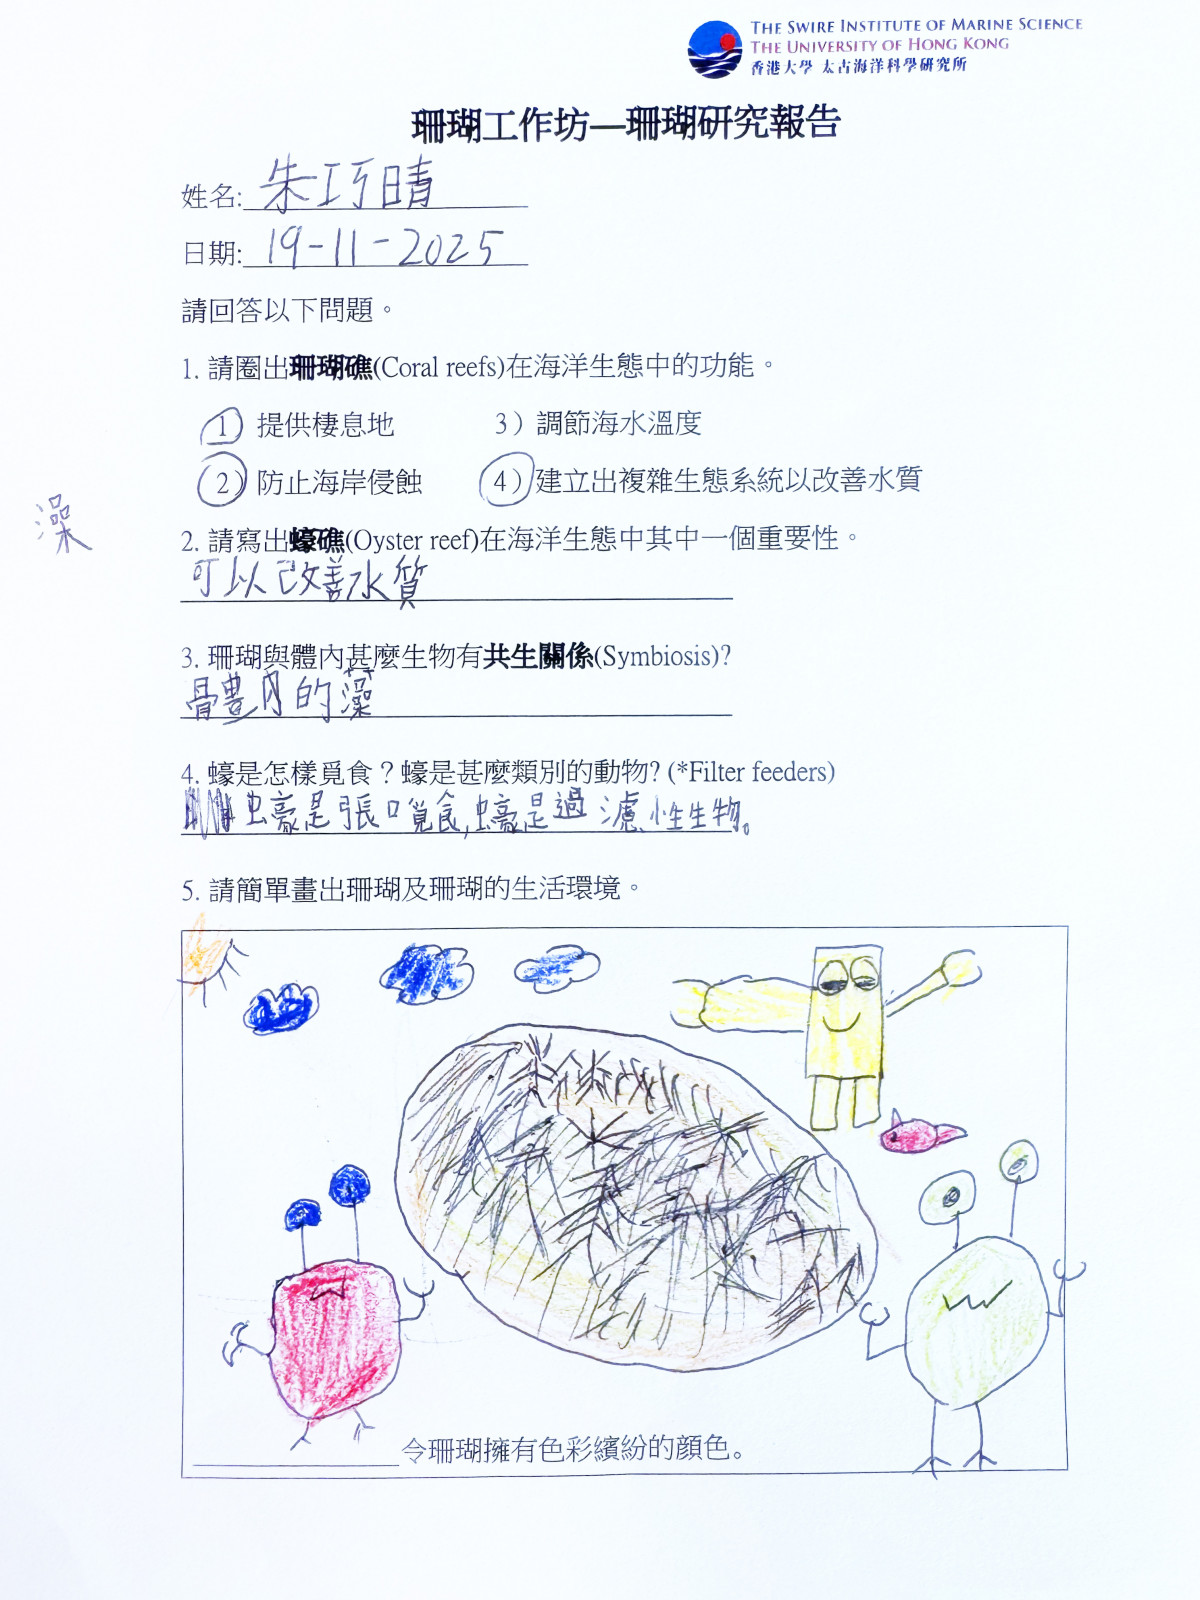 THE SWIRE INSTITUTE OF MARINE SCIENCE
THE UNIVERSITY OF HONG KONG
香港大學 太古海洋科學研究所
珊瑚工作坊—珊瑚研究報告
姓名: 朱巧晴
日期: 19-11-2025
請回答以下問題。
1. 請圈出珊瑚礁(Coral reefs)在海洋生態中的功能。
1) 提供棲息地 3) 調節海水溫度
2) 防止海岸侵蝕 4) 建立出複雜生態系統以改善水質
澡
2. 請寫出蠔礁(Oyster reef)在海洋生態中其中一個重要性。
可以改善水質
3. 珊瑚與體內甚麼生物有共生關係(Symbiosis)?
體內的藻
4. 蠔是怎樣覓食？蠔是甚麼類別的動物? (*Filter feeders)
蠔是張口覓食,蠔是過濾性生物。
5. 請簡單畫出珊瑚及珊瑚的生活環境。
令珊瑚擁有色彩繽紛的顏色。